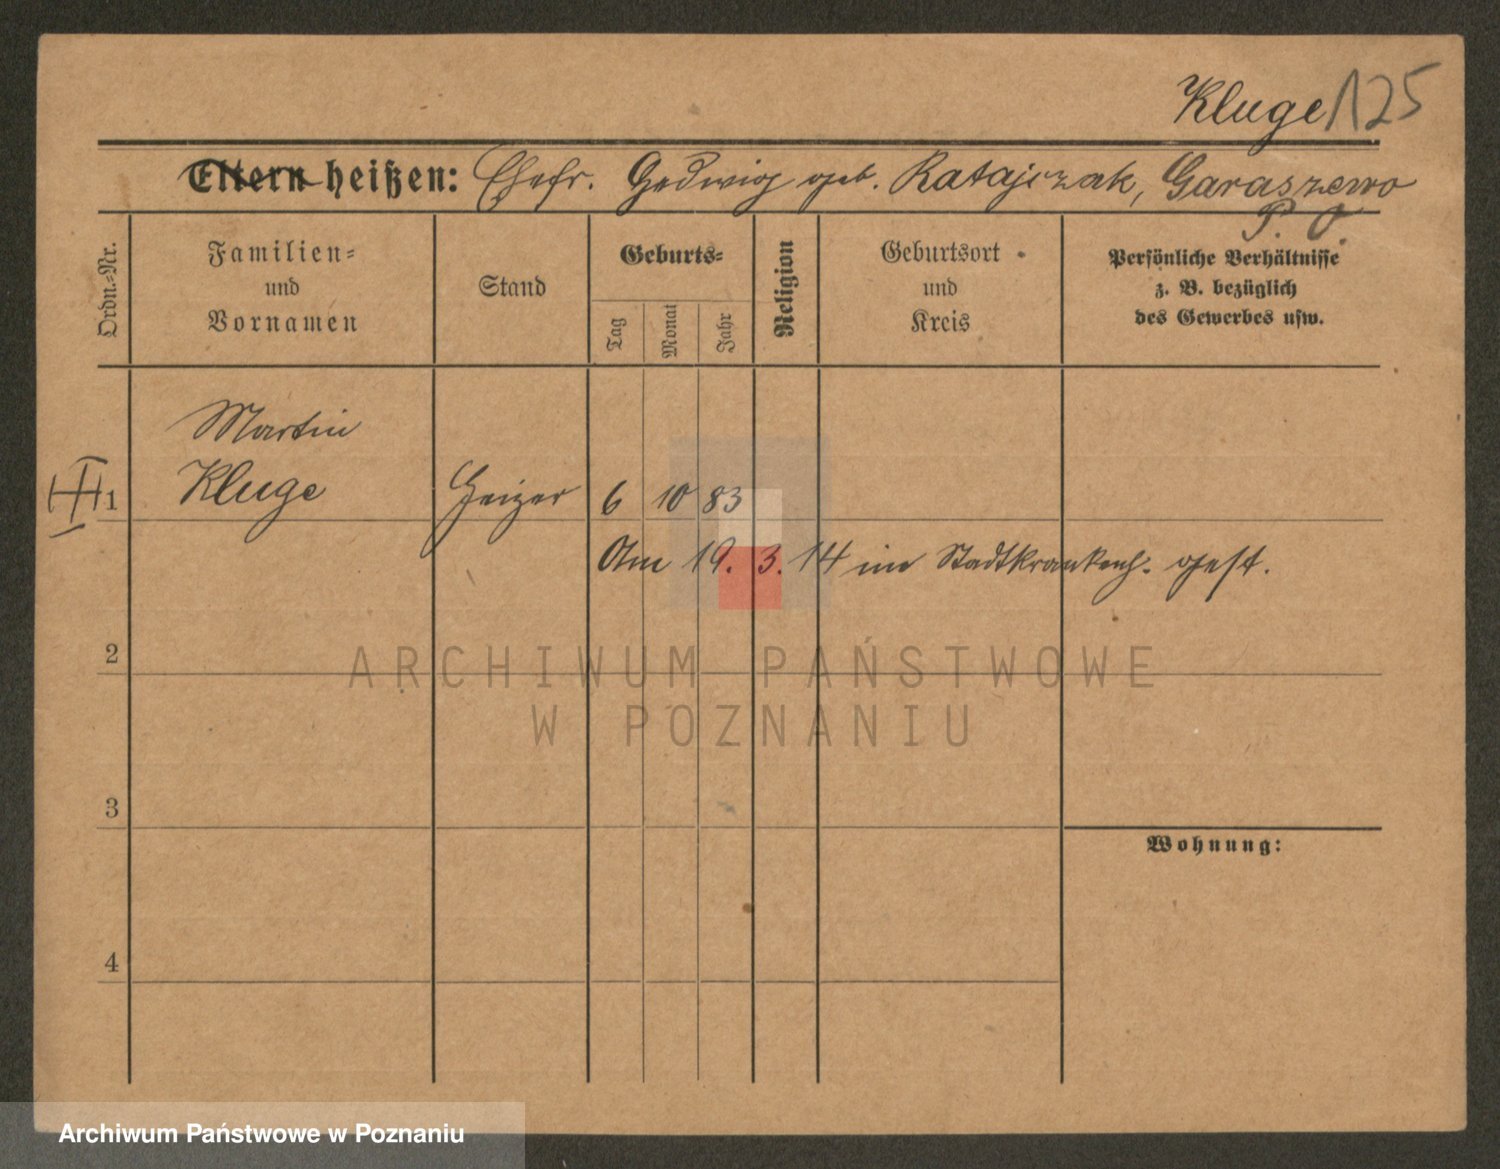 Kluge 125
Eltern heißen: Ehefr. Hedwig geb. Ratajczak, Garaszewo
P. O.
Ordn.-Nr.
Familien-
und
Vornamen
Stand
Geburts-
Tag
Monat
Jahr
Religion
Geburtsort
und
Kreis
Persönliche Verhältnisse
z. B. bezüglich
des Gewerbes usw.
Martin
1 Kluge Heizer 6 10 83
Am 19. 3. 14 im Stadtkrankenh. gest.
2
3
Wohnung:
4
ARCHIWUM PAŃSTWOWE
W POZNANIU
Archiwum Państwowe w Poznaniu